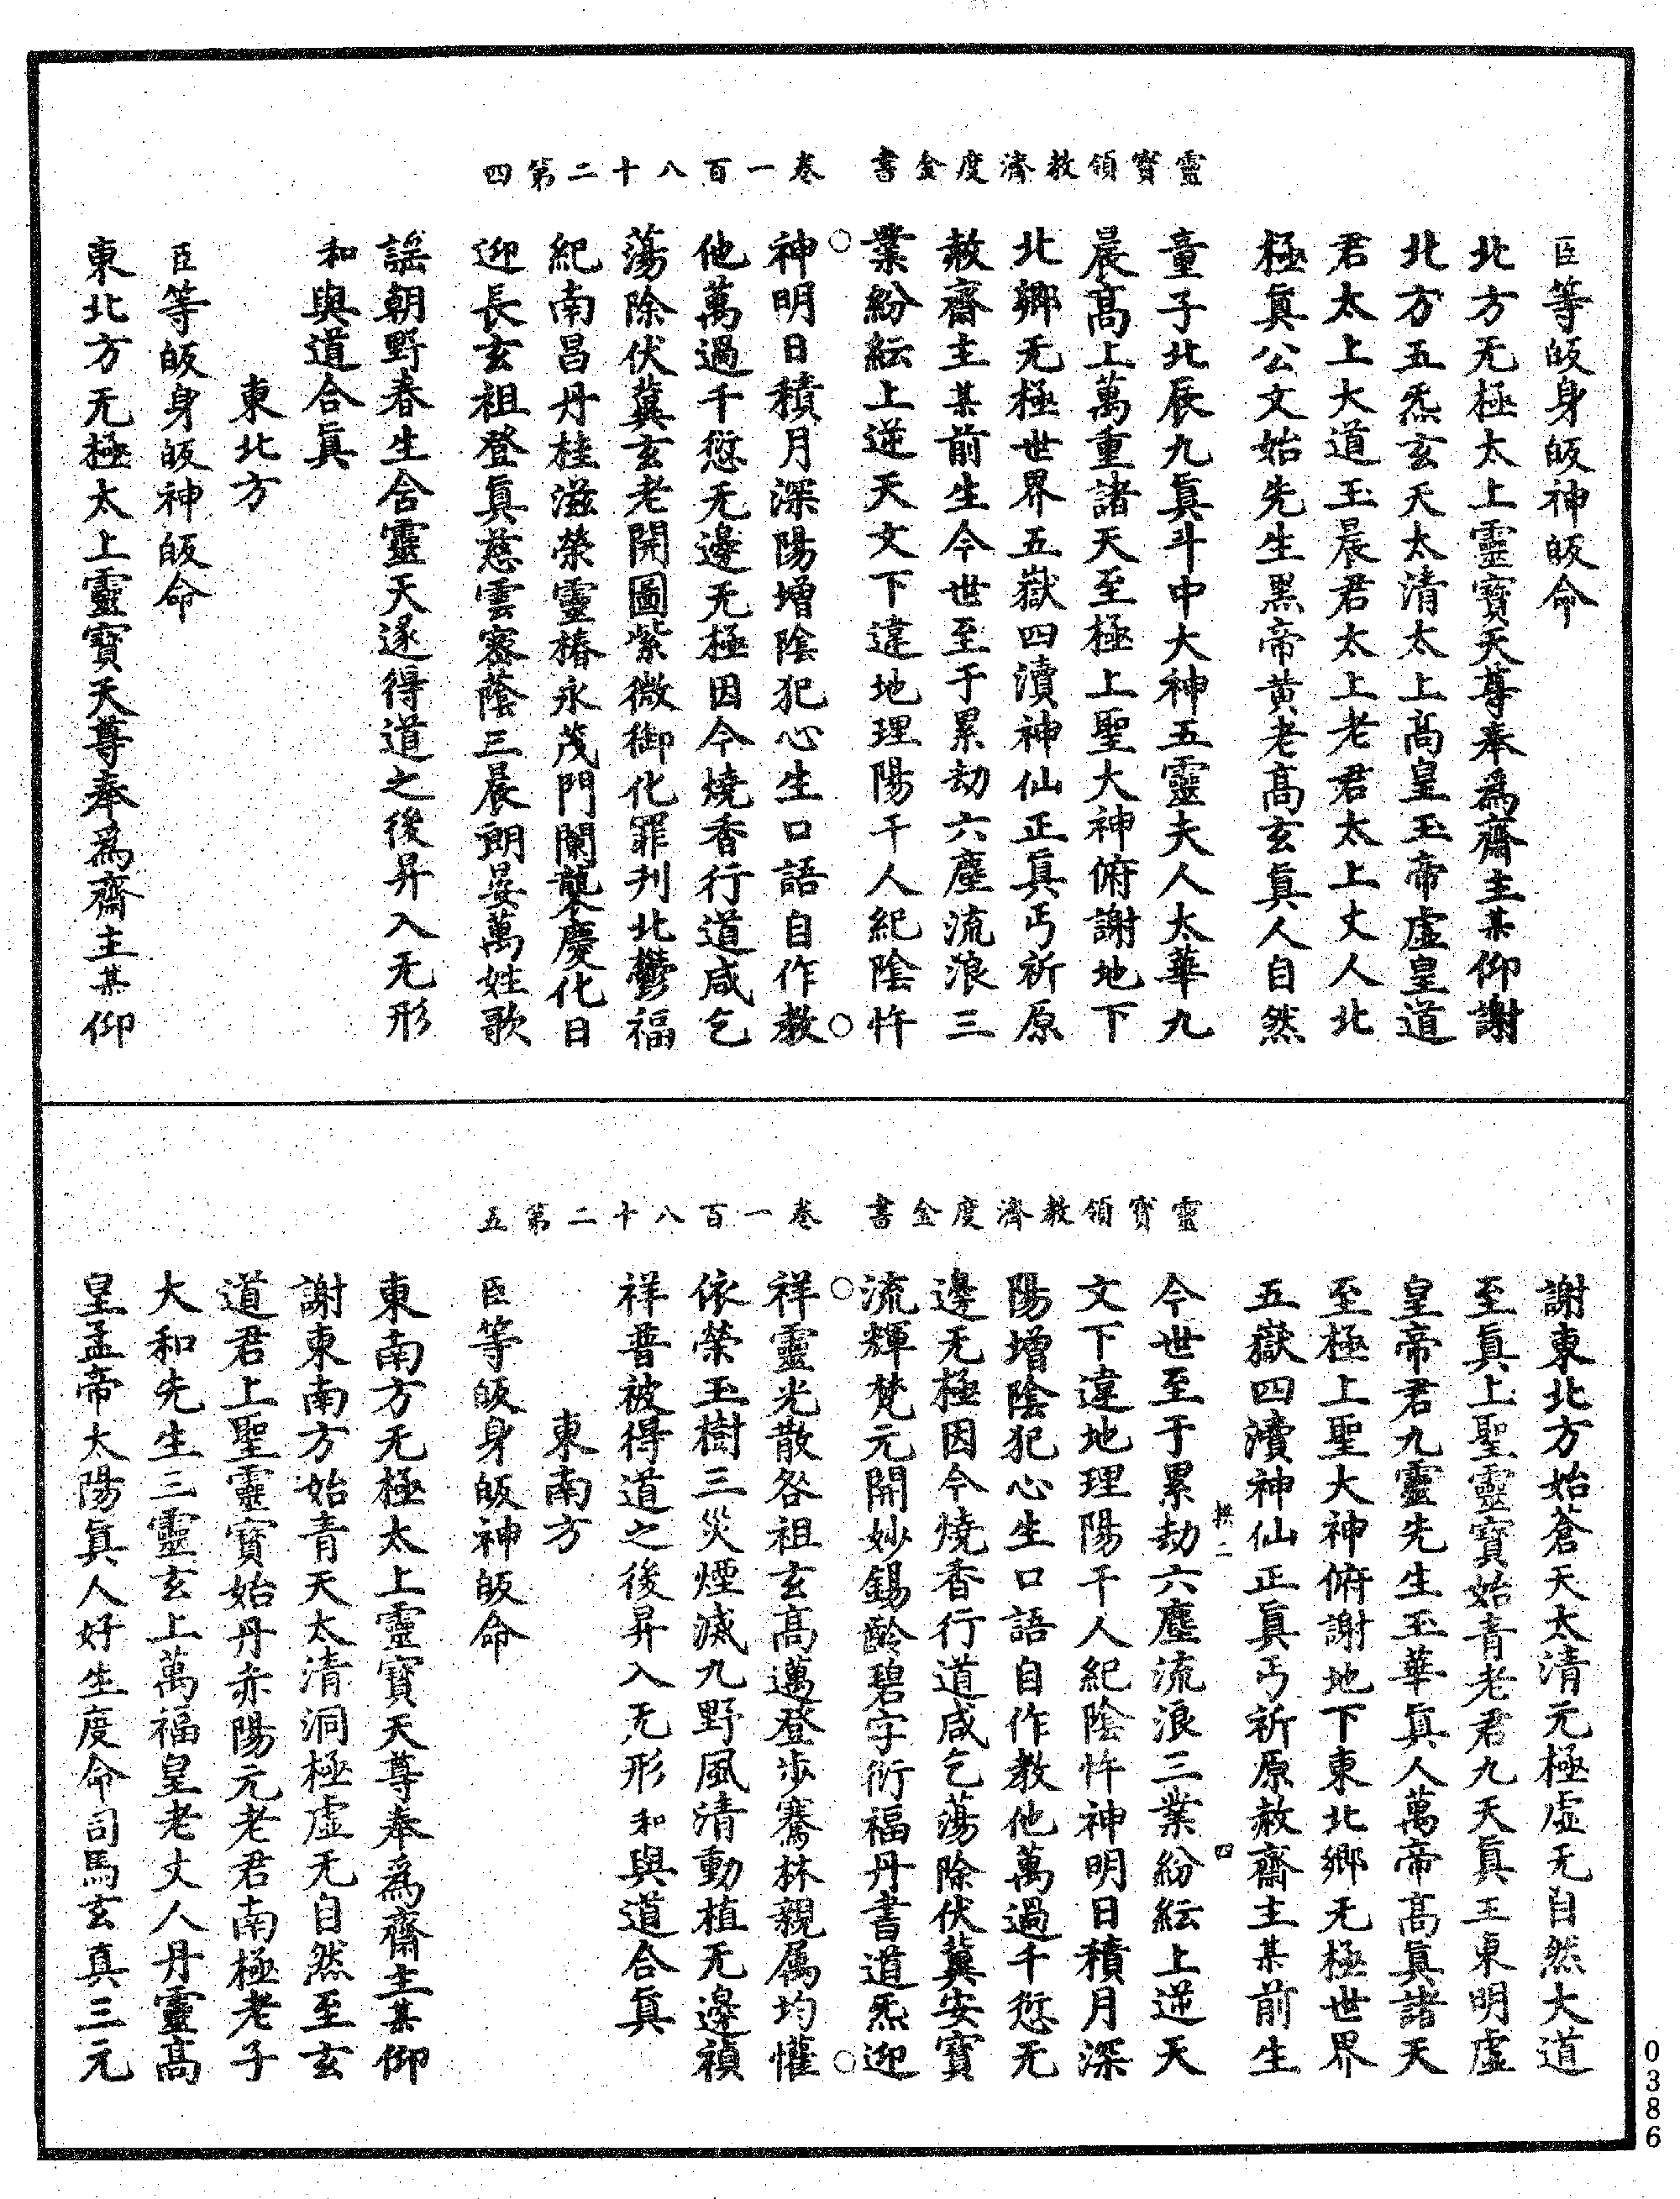 靈寶領教濟度金書　卷一百八十二第四
臣等皈身皈神皈命
北方无極太上靈寶天尊奉爲齋主某仰謝
北方五炁玄天太清太上高皇玉帝虛皇道
君太上大道玉晨君太上老君太上丈人北
極眞公文始先生黑帝黃老高玄眞人自然
童子北辰九眞斗中大神五靈夫人太華九
晨高上萬重諸天至極上聖大神俯謝地下
北鄉无極世界五嶽四瀆神仙正眞丐祈原
赦齋主某前生今世至于累劫六塵流浪三
業紛紜上逆天文下違地理陽干人紀陰忤
神明日積月深陽增陰犯心生口語自作教
他萬過千愆无邊无極因今燒香行道咸乞
蕩除伏冀玄老開圖紫微御化罪刋北鬱福
紀南昌丹桂滋榮靈椿永茂門闌襲慶化日
迎長玄祖登眞慈雲密蔭三晨朗晏萬姓歌
謡朝野春生含靈天遂得道之後昇入无形
和與道合眞
東北方
臣等皈身皈神皈命
東北方无極太上靈寶天尊奉爲齋主某仰
靈寶領教濟度金書　卷一百八十二第五
謝東北方始蒼天太清元極虛无自然大道
至眞上聖靈寶始青老君九天眞王東明虛
皇帝君九靈先生玉華眞人萬帝高眞諸天
至極上聖大神俯謝地下東北鄉无極世界
五嶽四瀆神仙正眞丐祈原赦齋主某前生
二　四
今世至于累劫六塵流浪三業紛紜上逆天
文下違地理陽干人紀陰忤神明日積月深
陽增陰犯心生口語自作教他萬過千愆无
邊无極因今燒香行道咸乞蕩除伏冀安寶
流輝梵元開妙錫齡碧字衍福丹書道炁迎
祥靈光散咎祖玄高邁登步騫林親属均懽
依榮玉樹三災煙滅九野風清動植无邊禎
祥普被得道之後昇入无形和與道合眞
東南方
臣等皈身皈神皈命
東南方无極太上靈寶天尊奉爲齋主某仰
謝東南方始青天太清洞極虛无自然至玄
道君上聖靈寶始丹赤陽元老君南極老子
大和先生三靈玄上萬福皇老丈人丹靈高
皇孟帝太陽眞人好生度命司馬玄真三元
0386